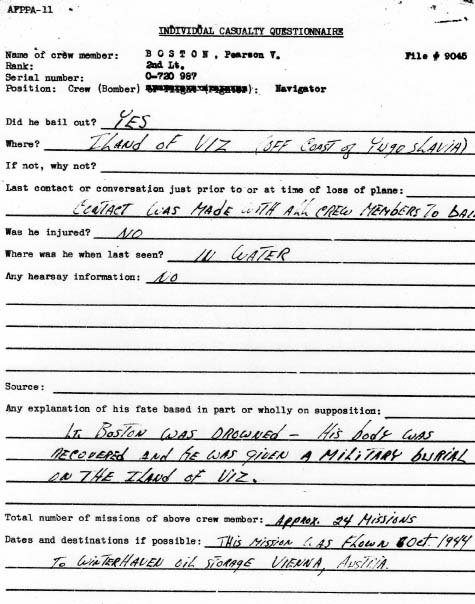 AFPPA-11
INDIVIDUAL CASUALTY QUESTIONNAIRE
Name of crew member: BOSTON, Pearson V. File # 9045
Rank: 2nd Lt.
Serial number: O-720 987
Position: Crew (Bomber) ): Navigator
Did he bail out? YES
Where? ILAND OF VIZ (OFF COAST of YUGOSLAVIA)
If not, why not?
Last contact or conversation just prior to or at time of loss of plane:
CONTACT WAS MADE WITH ALL CREW MEMBERS TO BAIL
Was he injured? NO
Where was he when last seen? IN WATER
Any hearsay information: NO
Source:
Any explanation of his fate based in part or wholly on supposition:
LT. BOSTON WAS DROWNED - HIS BODY WAS
RECOVERED AND HE WAS GIVEN A MILITARY BURIAL
ON THE ILAND OF VIZ.
Total number of missions of above crew member: APPROX. 24 MISSIONS
Dates and destinations if possible: THIS MISSION WAS FLOWN Oct. 1944
TO WINTERHAVEN OIL STORAGE VIENNA, AUSTRIA.